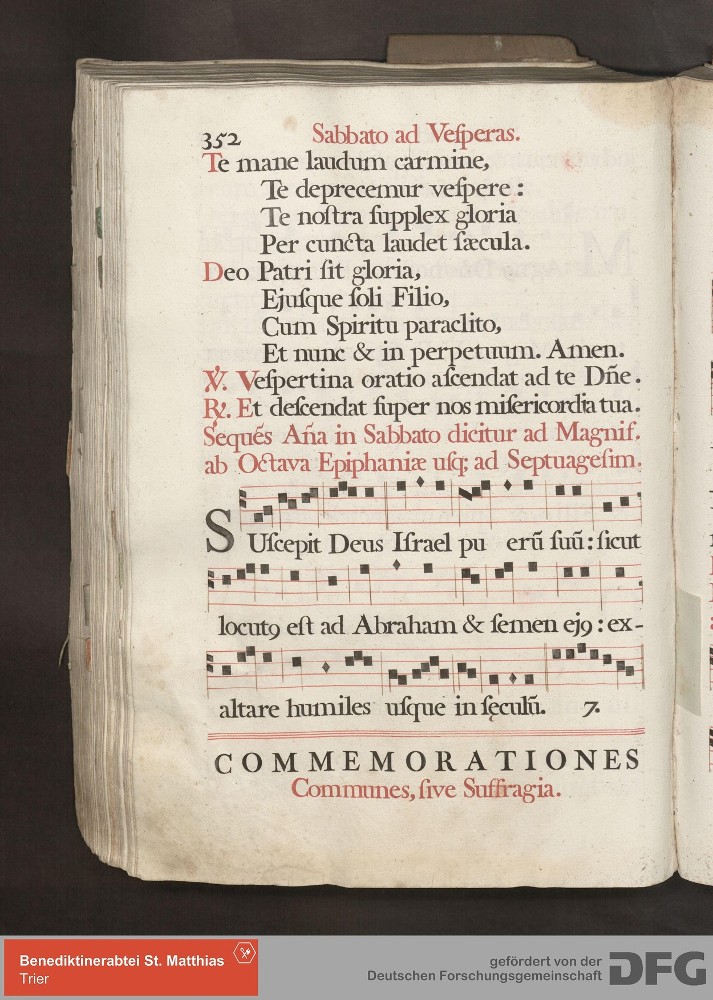 352 Sabbato ad Veſperas.
Te mane laudum carmine,
Te deprecemur veſpere :
Te noſtra ſupplex gloria
Per cuncta laudet ſæcula.
Deo Patri ſit gloria,
Ejuſque ſoli Filio,
Cum Spiritu paraclito,
Et nunc & in perpetuum. Amen.
℣. Veſpertina oratio aſcendat ad te Dn̄e.
℟. Et deſcendat ſuper nos miſericordia tua.
Sequēs Aña in Sabbato dicitur ad Magnif.
ab Octava Epiphaniæ uſq; ad Septuageſim.
SUſcepit Deus Iſrael pu erū ſuū : ſicut
locut9 eſt ad Abraham & ſemen ej9 : ex-
altare humiles uſque in ſęculū. 7.
COMMEMORATIONES
Communes, ſive Suffragia.
Benediktinerabtei St. Matthias
Trier
gefördert von der
Deutschen Forschungsgemeinschaft
DFG